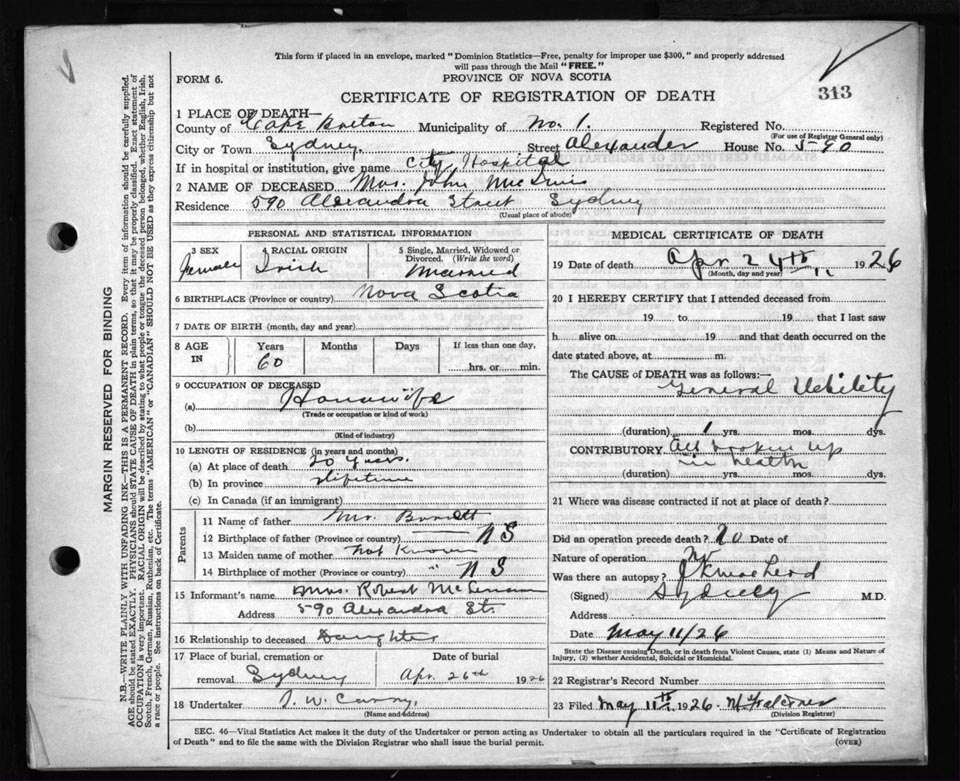 This form if placed in an envelope, marked "Dominion Statistics—Free, penalty for improper use $300," and properly addressed
will pass through the Mail "FREE."
FORM 6.
PROVINCE OF NOVA SCOTIA
CERTIFICATE OF REGISTRATION OF DEATH
313
1 PLACE OF DEATH—
County of Cape Breton Municipality of No. 1. Registered No.
(For use of Registrar General only)
City or Town Sydney. Street Alexander House No. 590
If in hospital or institution, give name City Hospital
2 NAME OF DECEASED Mrs. John
Residence 590 Alexandra Street Sydney
(Usual place of abode)
PERSONAL AND STATISTICAL INFORMATION
3 SEX 4 RACIAL ORIGIN 5 Single, Married, Widowed or Divorced. (Write the word)
Female Irish Married
6 BIRTHPLACE (Province or country) Nova Scotia
7 DATE OF BIRTH (month, day and year)
8 AGE IN Years Months Days If less than one day,
60 hrs. or min.
9 OCCUPATION OF DECEASED
(a) Housewife
(Trade or occupation or kind of work)
(b)
(Kind of industry)
10 LENGTH OF RESIDENCE (in years and months)
(a) At place of death 20 years.
(b) In province lifetime
(c) In Canada (if an immigrant)
Parents
11 Name of father Mr.
12 Birthplace of father (Province or country) N S
13 Maiden name of mother not known
14 Birthplace of mother (Province or country) " N S
15 Informant's name Mrs. Robert
Address 590 Alexandra St.
16 Relationship to deceased Daughter
17 Place of burial, cremation or removal Sydney
Date of burial
Apr. 26th 1926
18 Undertaker
(Name and address)
MEDICAL CERTIFICATE OF DEATH
19 Date of death Apr 24th 1926
(Month, day and year)
20 I HEREBY CERTIFY that I attended deceased from
19 to 19 that I last saw
h alive on 19 and that death occurred on the
date stated above, at m.
The CAUSE of DEATH was as follows:—
General Debility
(duration) 1 yrs. mos. dys.
CONTRIBUTORY All broken up
in health
(duration) yrs. mos. dys.
21 Where was disease contracted if not at place of death?
Did an operation precede death? No Date of
Nature of operation
Was there an autopsy? No
(Signed) M.D.
Address Sydney
Date May 11/26
State the Disease causing Death, or in death from Violent Causes, state (1) Means and Nature of
Injury, (2) whether Accidental, Suicidal or Homicidal.
22 Registrar's Record Number
23 Filed May 11th 1926
(Division Registrar)
SEC. 46—Vital Statistics Act makes it the duty of the Undertaker or person acting as Undertaker to obtain all the particulars required in the "Certificate of Registration
of Death" and to file the same with the Division Registrar who shall issue the burial permit.
(OVER)
MARGIN RESERVED FOR BINDING
N.B.—WRITE PLAINLY WITH UNFADING INK—THIS IS A PERMANENT RECORD. Every item of information should be carefully supplied.
AGE should be stated EXACTLY. PHYSICIANS should STATE CAUSE OF DEATH in plain terms, so that it may be properly classified. Exact statement of
OCCUPATION is very important. RACIAL ORIGIN will be described by stating to what people or tongue the deceased person belonged, whether English, Irish,
Scotch, French, German, Russian, Ruthenian, etc. The terms "AMERICAN" or "CANADIAN" SHOULD NOT BE USED as they express citizenship but not
a race or people. See instructions on back of Certificate.